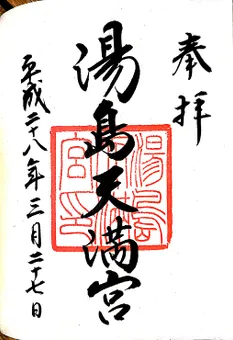 奉拝
湯島天満宮
平成二十八年三月二十七日